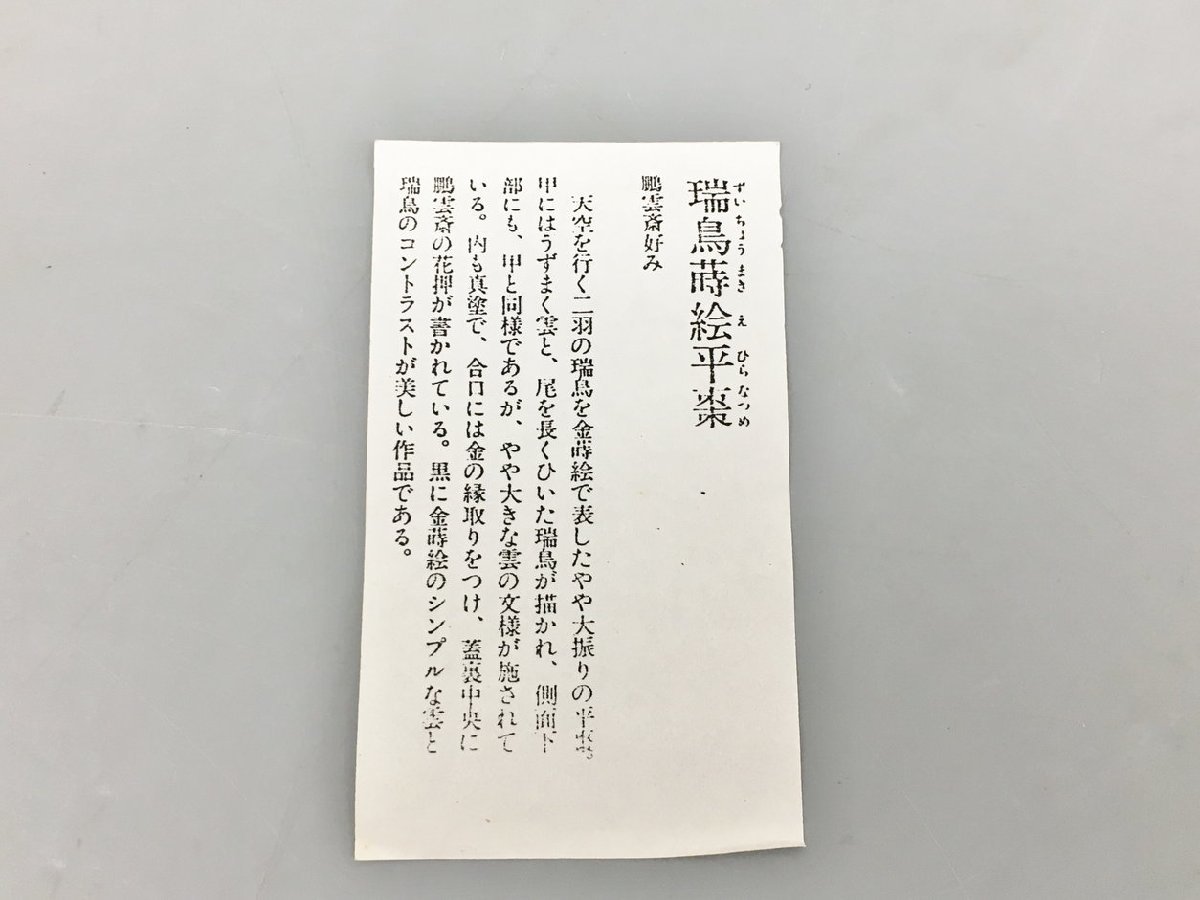 瑞鳥蒔絵平棗
ずいちょうまきえひらなつめ
鵬雲斎好み
天空を行く二羽の瑞鳥を金蒔絵で表したやや大振りの平棗。
甲にはうずまく雲と、尾を長くひいた瑞鳥が描かれ、側面下
部にも、甲と同様であるが、やや大きな雲の文様が施されて
いる。内も真塗で、合口には金の縁取りをつけ、蓋裏中央に
鵬雲斎の花押が書かれている。黒に金蒔絵のシンプルな雲と
瑞鳥のコントラストが美しい作品である。